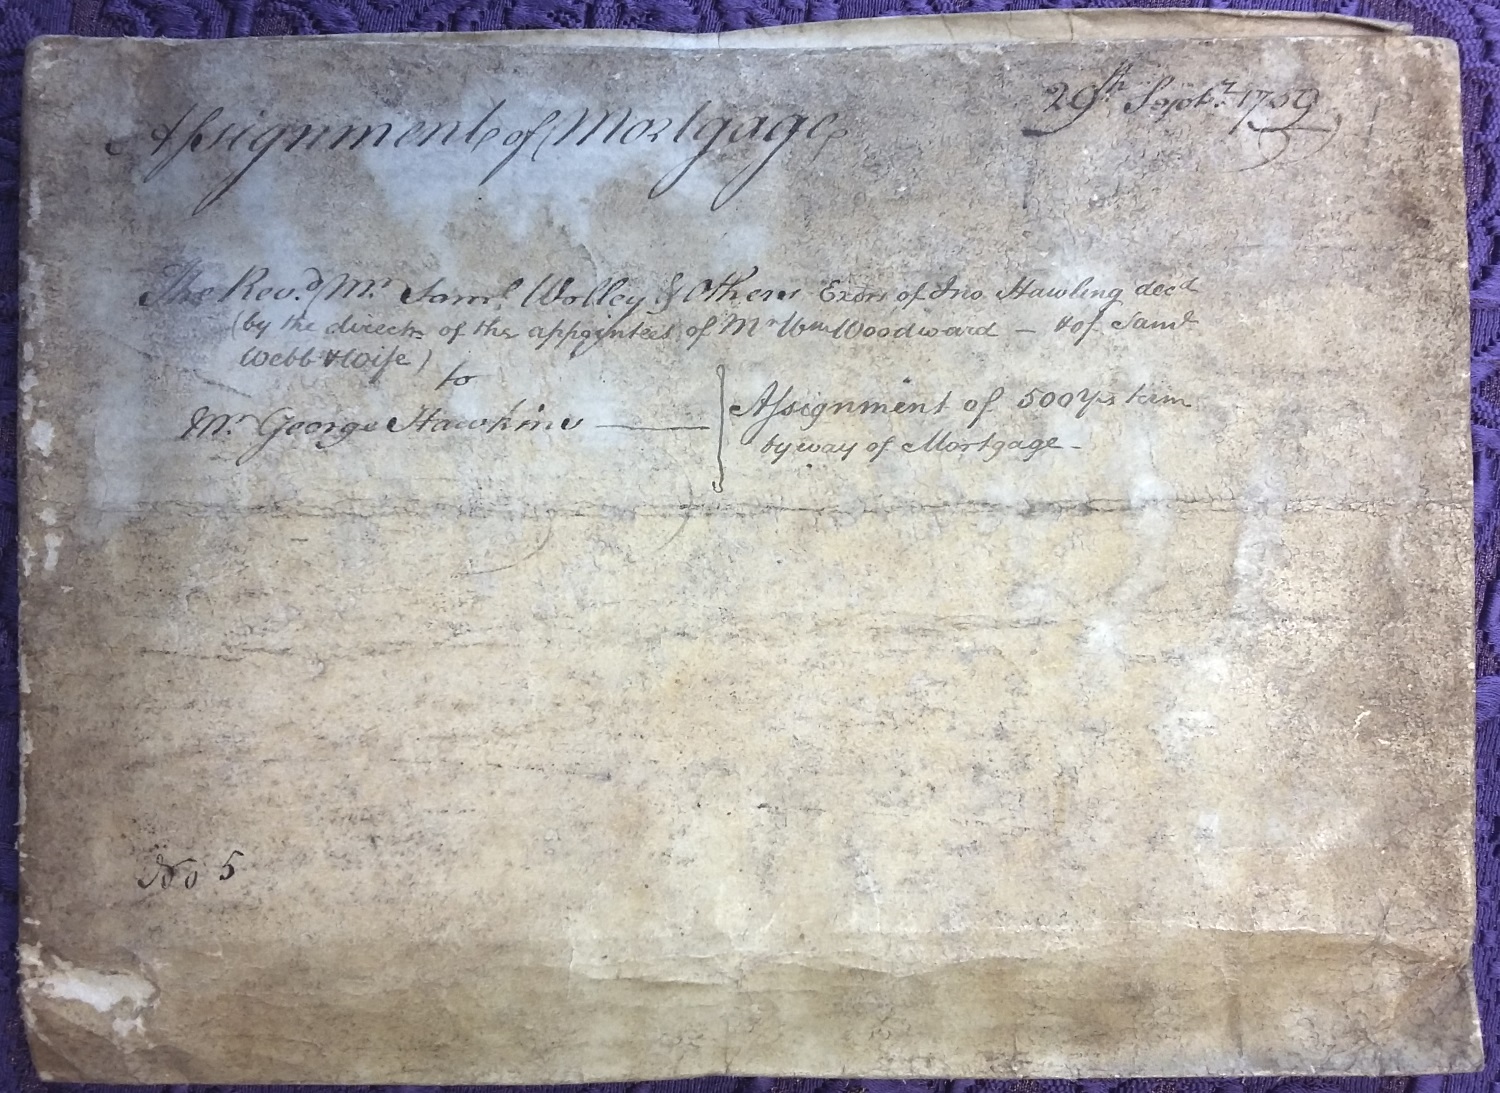 Assignment of Mortgage
29th Septr. 1759
The Revd. Mr. Saml. Wolley & Others Exors of Jno. Hawling decd
(by the directn of the appointees of Mr Wm Woodward – & of Saml
Webb & Wife)
to
Mr. George Hawkins
Assignment of 500 Yrs term
by way of Mortgage –
No 5